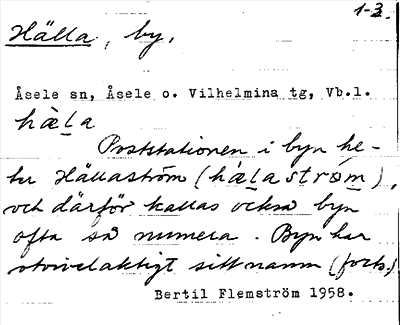 1-3.
Hälla, by.
Åsele sn, Åsele o. Vilhelmina tg, Vb.l.
hàla
Poststationen i byn he-
ter Hällaström (hálaström),
och därför kallas också byn
ofta så numera. Byn har
otvivelaktigt sitt namn (forts.)
Bertil Flemström 1958.